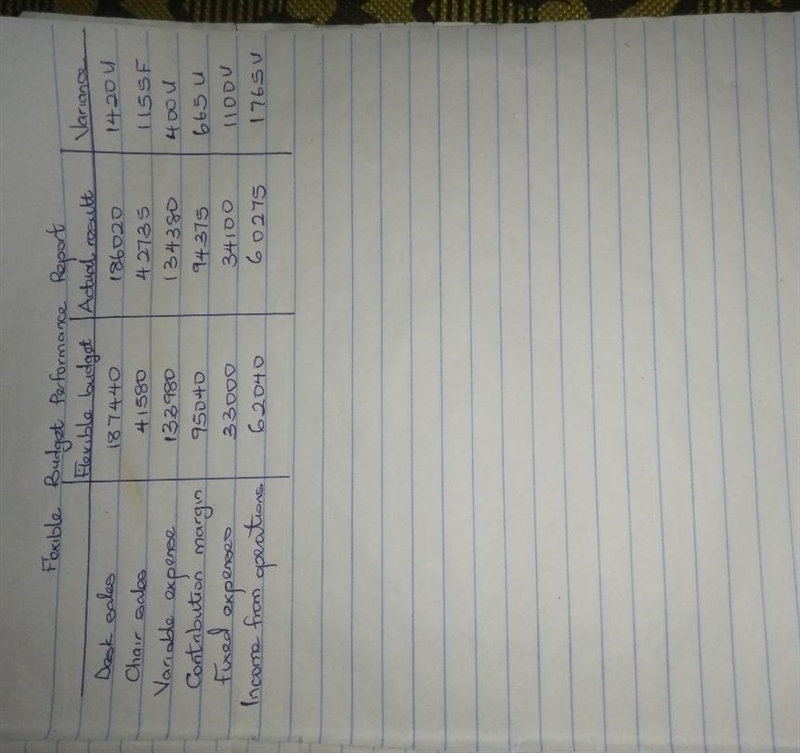 Flexible Budget Performance Report
Flexible budget Actual result Variance
Desk sales 187440 186020 1420U
Chair sales 41580 42735 1155F
Variable expense 133980 134380 400U
Contribution margin 95040 94375 665U
Fixed expenses 33000 34100 1100U
Income from operations 62040 60275 1765U